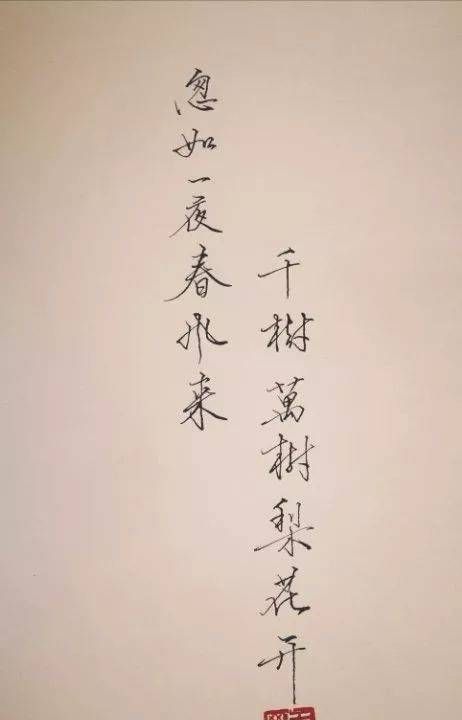 忽如一夜春风来
千樹萬樹梨花开